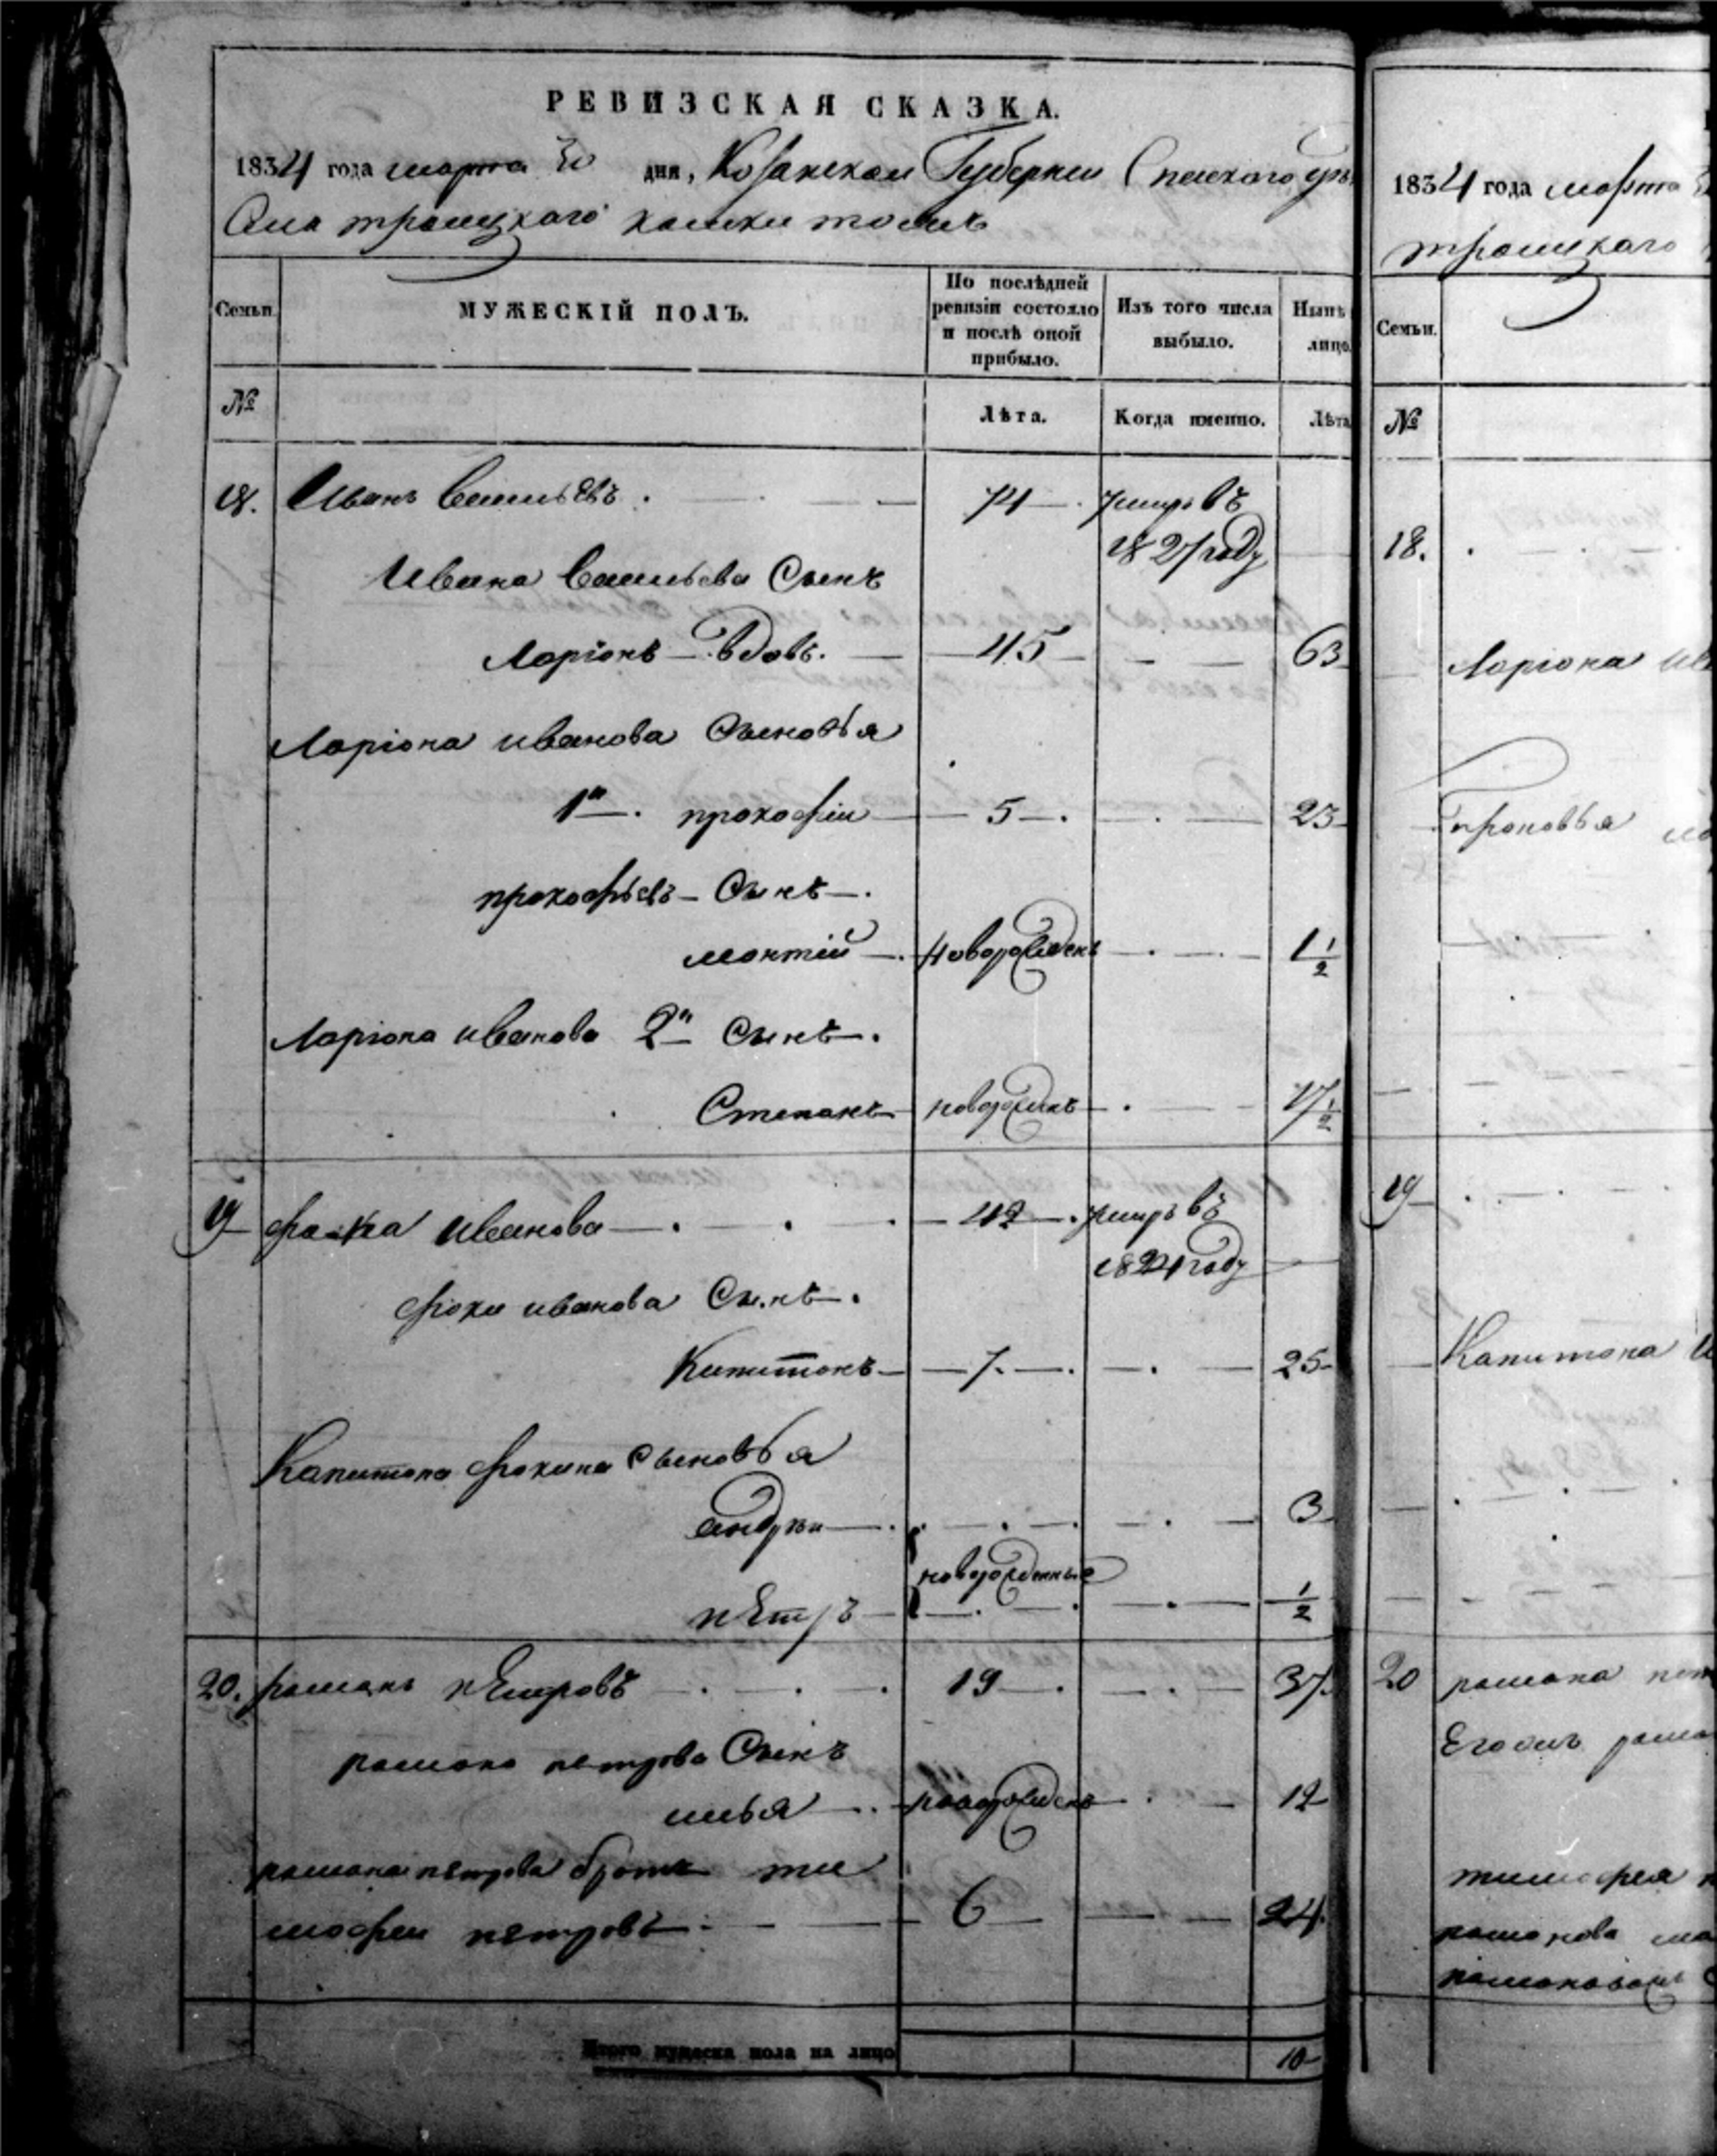 РЕВИЗСКАЯ СКАЗКА.
1834 года марта 30 дня, Козанской Губернии Спаского
Села троицкаго тожъ
Семьи.
МУЖЕСКІЙ ПОЛЪ.
По послѣдней ревизіи состояло и послѣ оной прибыло.
Изъ того числа выбыло.
Нынѣ лицо.
№
Лѣта.
Когда именно.
Лѣта
18. Иванъ Васильевъ. 74 умеръ въ
1827 году
Ивана Васильева Сынъ
Ларіонъ вдовъ. 45 63
Ларіона иванова Сыновья
1й прокофіи 5 23
прокофьевъ Сынъ
новорожденъ 1 1/2
Ларіона иванова 2й Сынъ
Степанъ новорожденъ 17 1/2
19 фока иванова 42 умеръ въ
1821 году
фоки иванова Сынъ
Капитонъ 7 25
Капитона фокина Сыновья
андреи 3
новорожденные
пЕтръ 1/2
20. романъ пЕтровъ 19 37
романа петрова Сынъ
илья новорожденъ 12
романа петрова братъ ти
мофеи петровъ 6 24
Итого мужеска пола на лицо 10
1834 года марта
троицкаго
Семьи.
№
18.
Ларіона
19
Капитона
20 романа
Егоже
тимофея